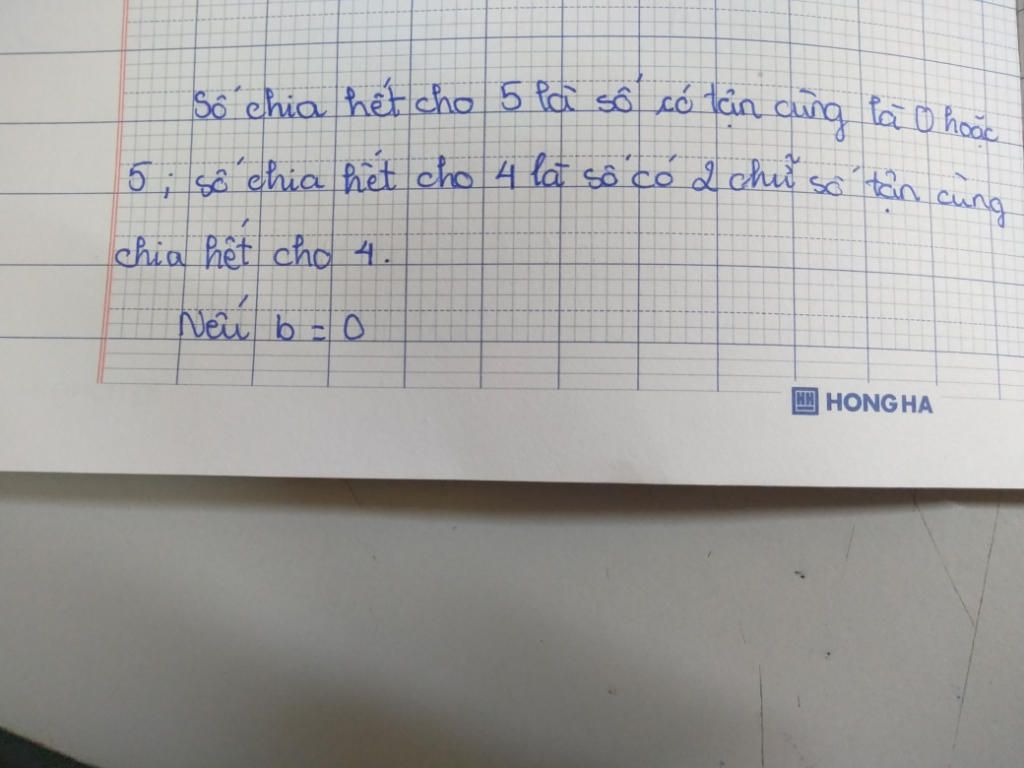 Số chia hết cho 5 là số có tận cùng là 0 hoặc
5; số chia hết cho 4 là số có 2 chữ số tận cùng
chia hết cho 4.
Nếu b = 0
HH HONG HA